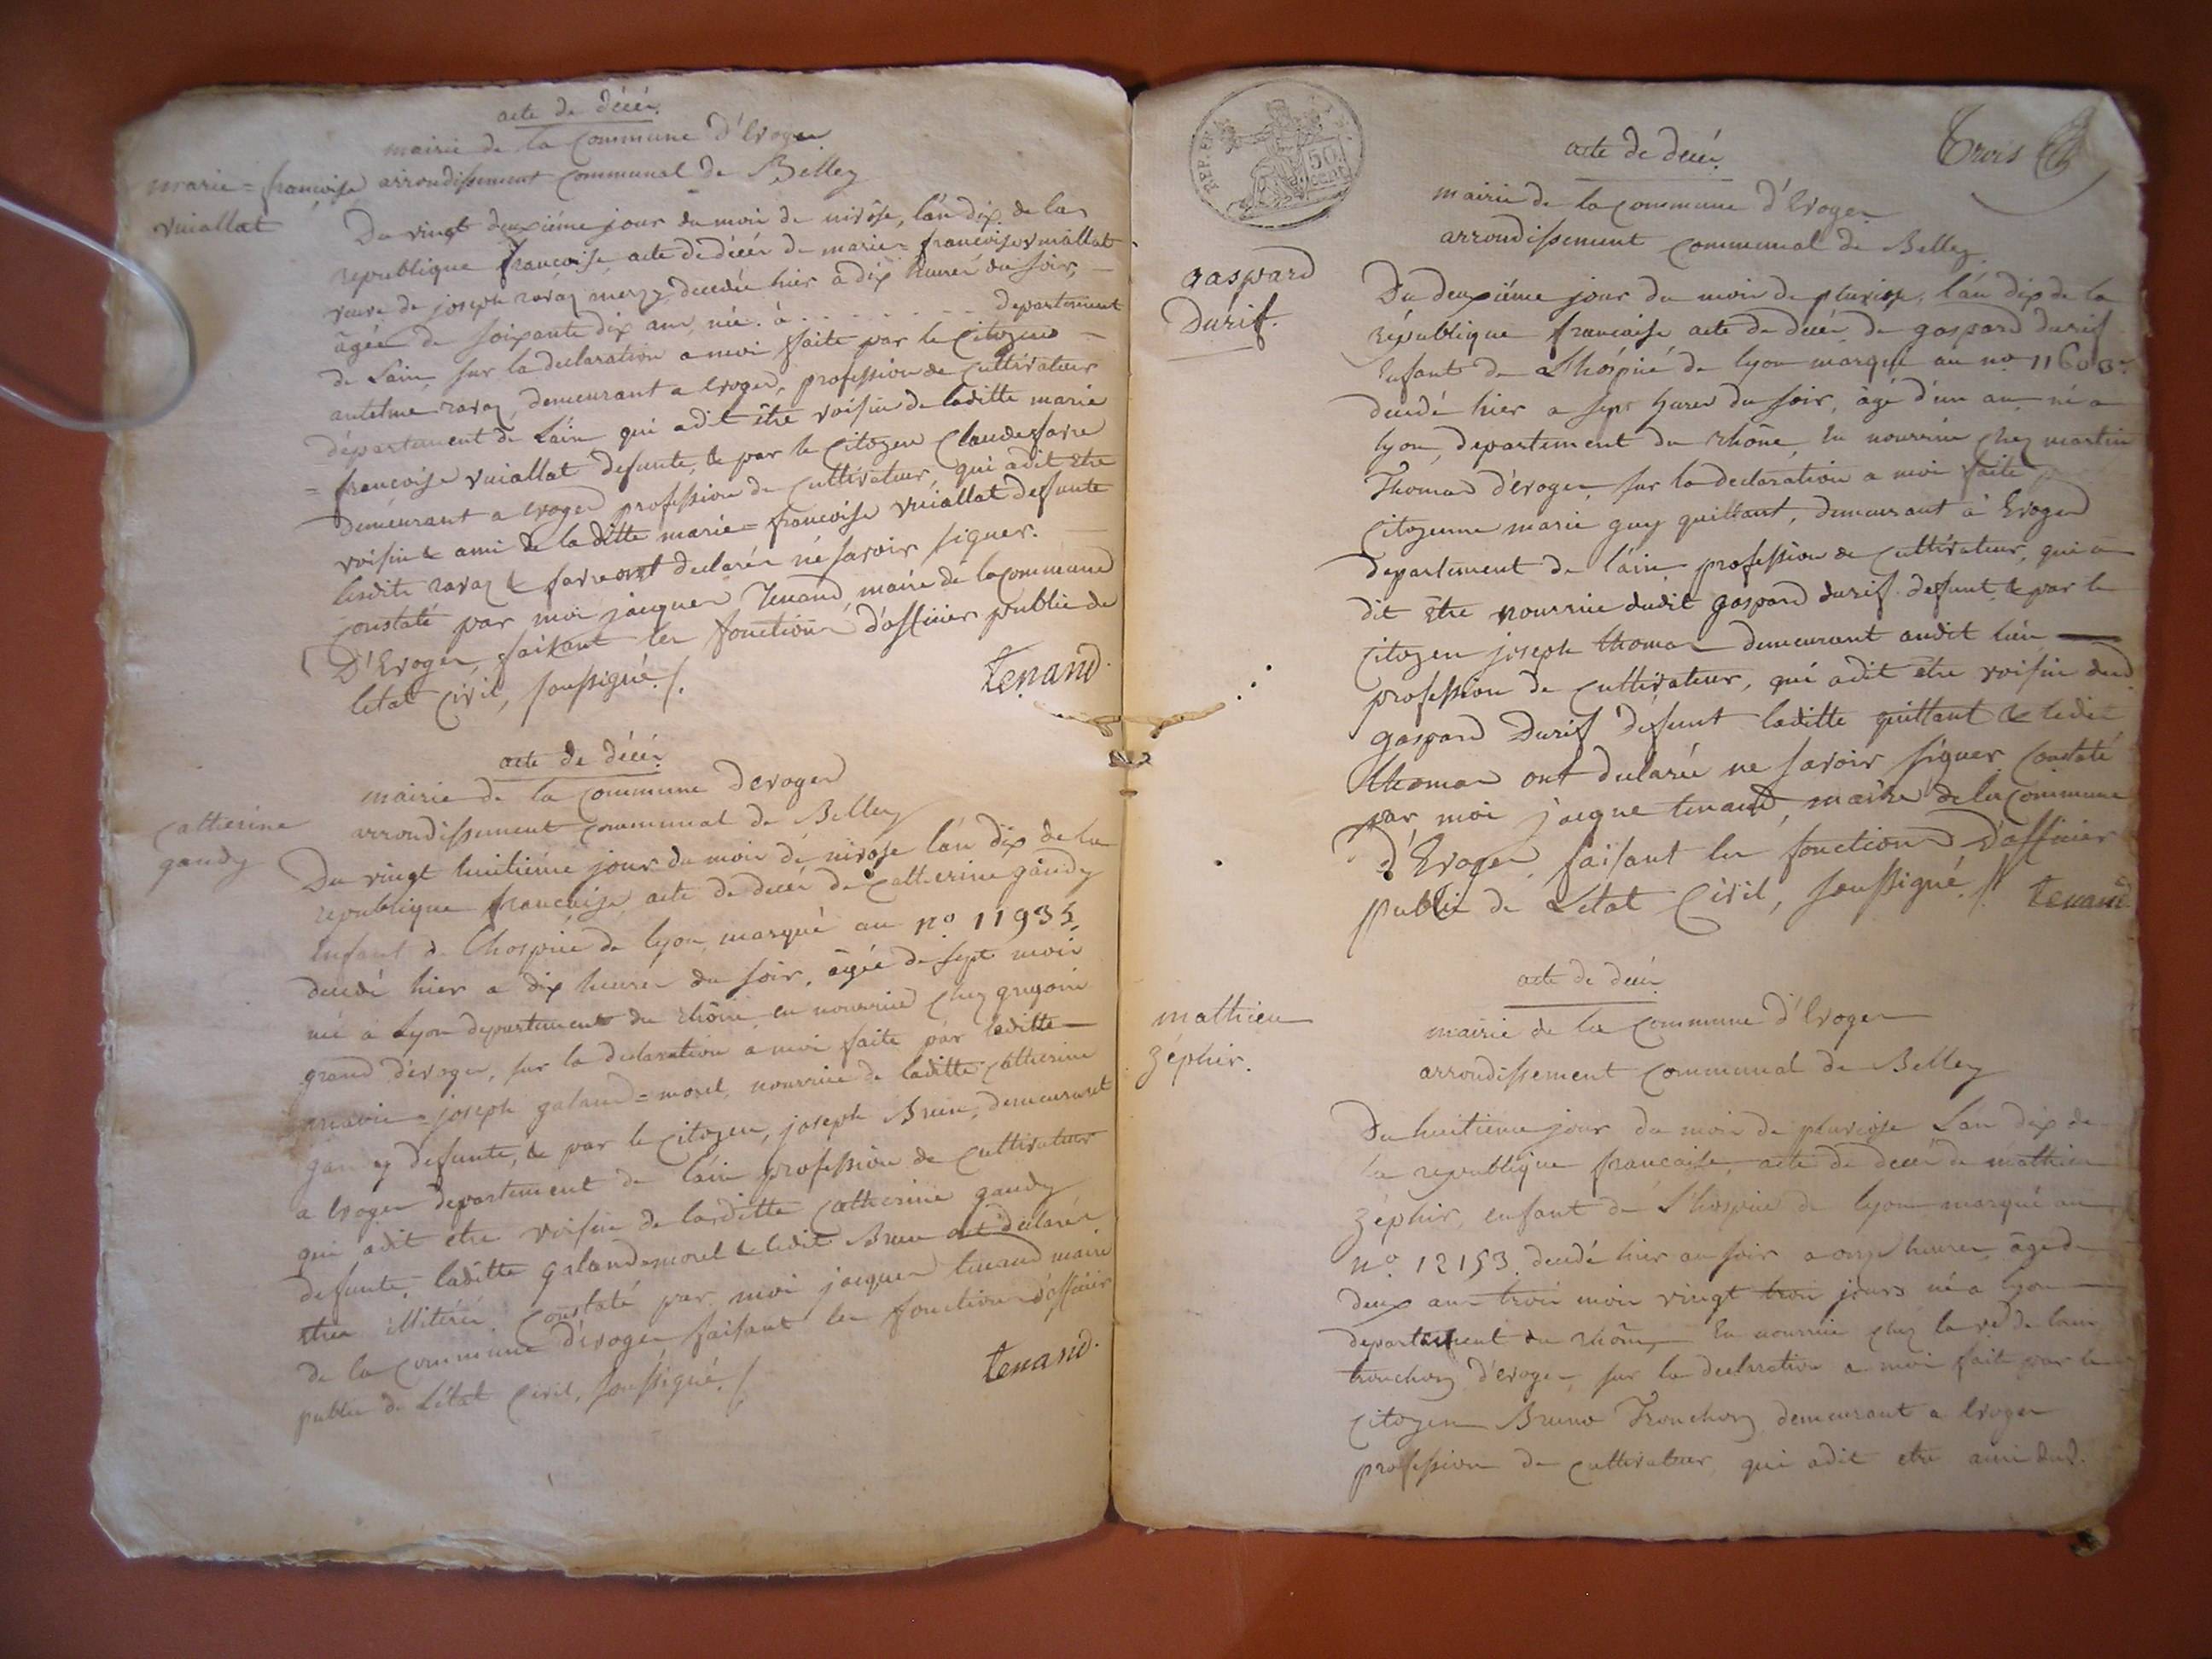 acte de décés.
mairie de la Commune d'Evoges
marie = françoise
vuiallat
arrondissement Communal de Belley
Du vingt deuxiéme jour du mois de nivôse, l'an dix de la
republique françoise acte de décés de marie = françoise vuiallat
veuve de joseph ravaz decedée hier a dix heures du soir,
âgée de soixante dix ans, née à . . . . . . . . departement
de Lain, sur la declaration a moi faite par le Citoyen
antelme ravaz, demeurant a Evoges, profession de Cultivateur
département de Láin qui a dit être voisin de laditte marie
= françoise vuiallat defunte, & par le Citoyen Claude favre
demeurant a Evoges profession de Cultivateur, qui a dit etre
voisin & ami de la ditte marie = françoise vuiallat defunte
lesdits ravaz & favre ont declarés ne savoir signer.
Constaté par moi jacques Tenand, maire de la Commune
D'Evoges, faisant les fonctions d'officier public de
letat Civil, soussigné /.
Tenand.
acte de décés
mairie de la Commune devoges
Catherine
gaudy
arrondissement Communal de Belley
Du vingt huitiéme jour du mois de nivôse l'an dix de la
republique françoise acte de decés de Catherine gaudy
Enfant de Lhospice de lyon, marqué au n.o 11935,
decedé hier a dix heures du soir, âgée de sept mois
née a Lyon departement du rhône en nourrice chez gregoire
grand d'evoges, sur la declaration a moi faite par laditte
marie = joseph galand = morel, nourrice de laditte Catherine
gaudy defunte, & par le Citoyen, joseph Brun, demeurant
a Evoges departement de láin profession de Cultivateur
qui a dit etre voisin de laditte Catherine gaudy
defunte, laditte galand = morel & ledit Brun ont declarés
etre illitérés. Constaté par moi jacques tenand maire
de la Commune d'evoges faisant les fonctions d'officier
public de Létat Civil, soussigné. /.
tenand.
REP. FR.
50
CENT.
Trois
acte de decés
mairie de la Commune d'Evoges
arrondissement Communal de Belley
gaspard
Durif.
Du deuxiéme jour du mois de pluviose, l'an dix de la
république françoise acte de decés de gaspard durif
Enfant de Lhóspice de lyon marqué au n.o
decedé hier a sept heures du soir, âgé d'un an, né a
lyon, departement du rhône, En nourrice chez martin
Thomas d'évoges, sur la declaration a moi faite
Citoyenne marie guy quillant, demeurant à Evoges
département de láin profession de Cultivateur, qui a
dit être nourrice dudit gaspard durif defunt & par le
Citoyen joseph thomas demeurant audit lieu
profession de Cultivateur, qui a dit etre voisin dud
gaspard Durif défunt laditte quillant & ledit
thomas ont declarés ne savoir signer Constaté
par moi jacque tenand, maire de la Commune
d'Evoges faisant les fonctions d'officier
public de Létat Civil, soussigné. /.
tenand
acte de decés
mairie de la Commune d'Evoges
arrondissement Communal de Belley
mathieu
Zéphir.
Du huitieme jour du mois de pluviose L'an dix de
la republique françaife, acte de decés de mathieu
Zéphir, enfant de Lhospice de lyon marqué au
n.o 12153. decedé hier au soir a onze heures, âgé de
deux ans trois mois vingt trois jours né a lyon
departement du rhône, En nourrice chez la
tronchon d'evoges, sur la declaration a moi faite par le
Citoyen Bruno Tronchon demeurant a Evoges
profession de Cultivateur, qui a dit etre ami dud.